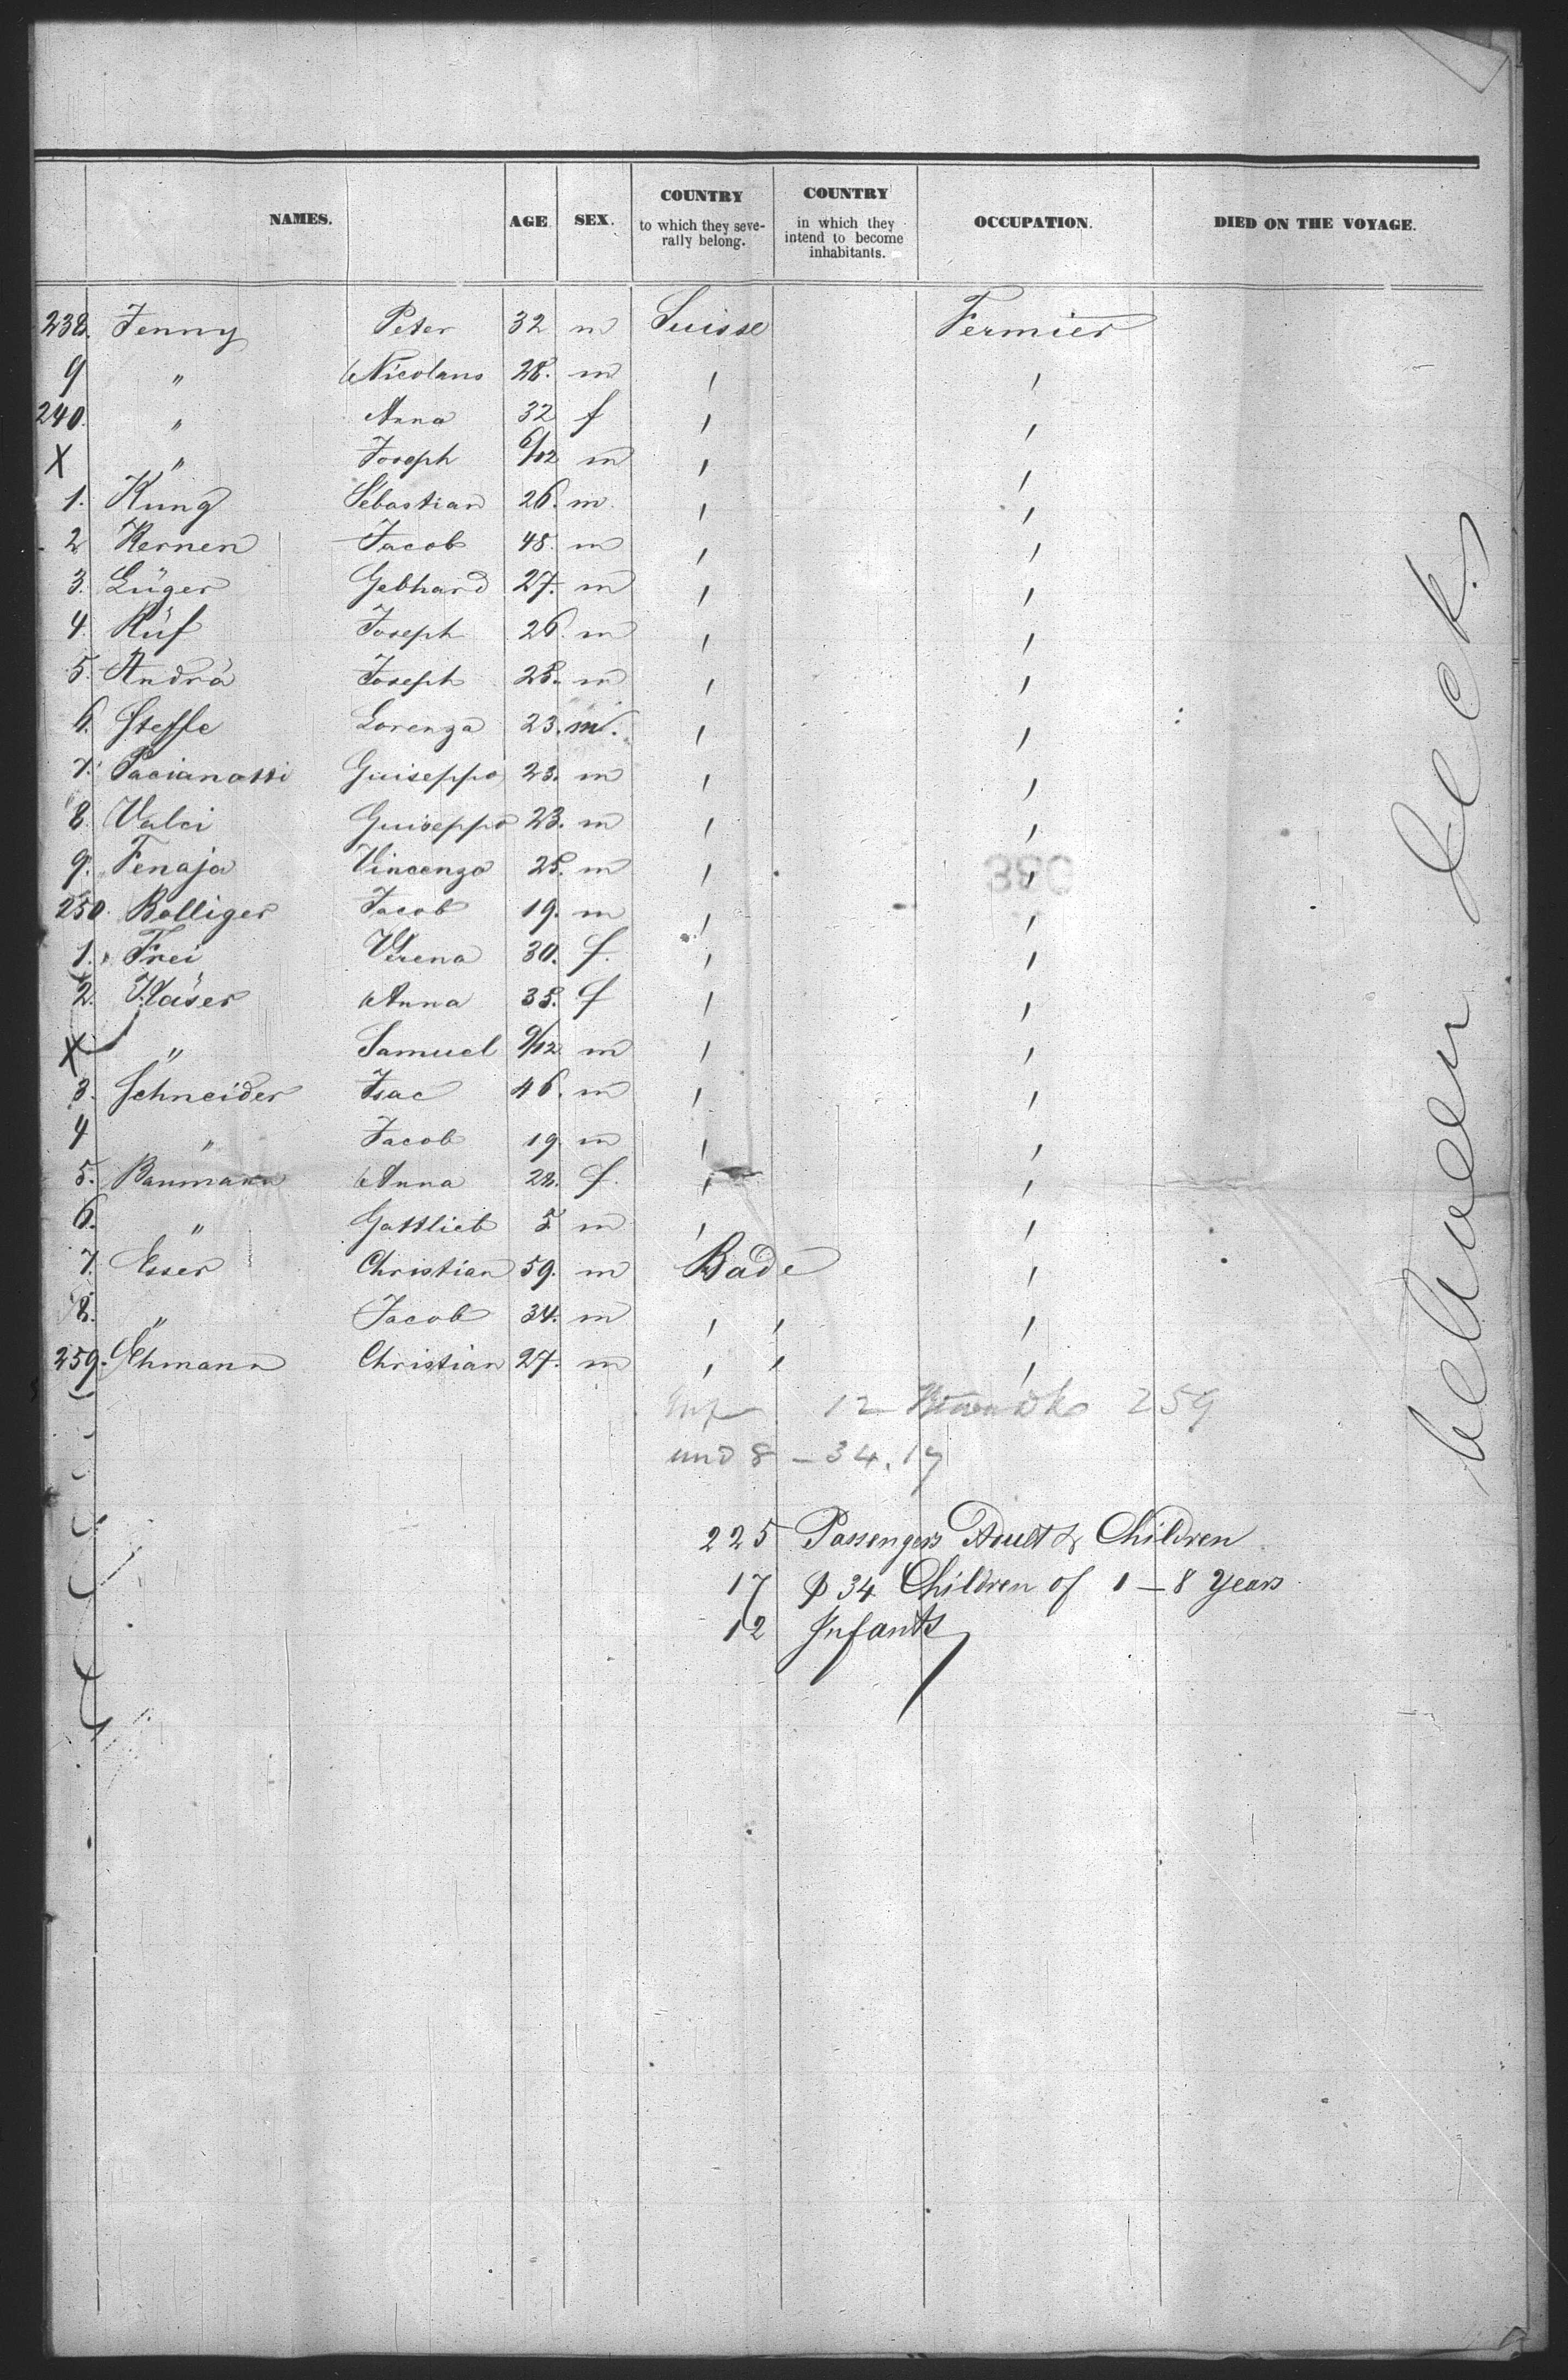 NAMES. AGE SEX. COUNTRY to which they severally belong. COUNTRY in which they intend to become inhabitants. OCCUPATION. DIED ON THE VOYAGE.
238. Jenny Peter 32 m Suisse Fermier
9 " Nicolaus 28. m ' '
240. " Anna 32 f ' '
X " Joseph 6/12 m ' '
1. Küng Sebastian 26. m. ' '
2 Kernen Jacob 48. m ' '
3. Lüger Gebhard 27. m ' '
4. Rüf Joseph 26. m ' '
5. Andrä Joseph 28. m ' '
6. Steffe Lorenza 23. m. ' '
7. Pacianotti Guiseppo 23. m ' '
8. Valci Guiseppo 23. m ' '
9. Fenaja Vincenzo 25. m ' '
250. Bolliger Jacob 19. m ' '
1. Frei Verena 30. f. ' '
2. Käser Anna 35. f ' '
X " Samuel 9/12 m ' '
3. Schneider Isac 46. m ' '
4 " Jacob 19. m ' '
5. Baumann Anna 28. f. ' '
6. " Gottlieb 5 m ' '
7. Esser Christian 59. m Bade '
8. " Jacob 34. m ' ' '
259. Ehmann Christian 27. m ' ' '
Inf 12 259
und 8 – 34. 17
225 Passengers Adult & Children
17 p 34 Children of 1 – 8 Years
12 Infants
between deck.